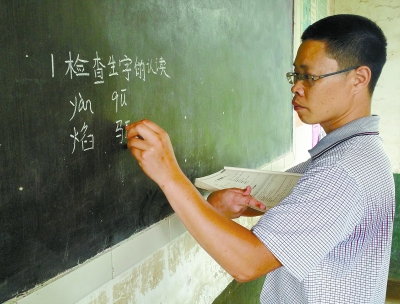 1 检查生字的认读
yàn qū
焰 驱